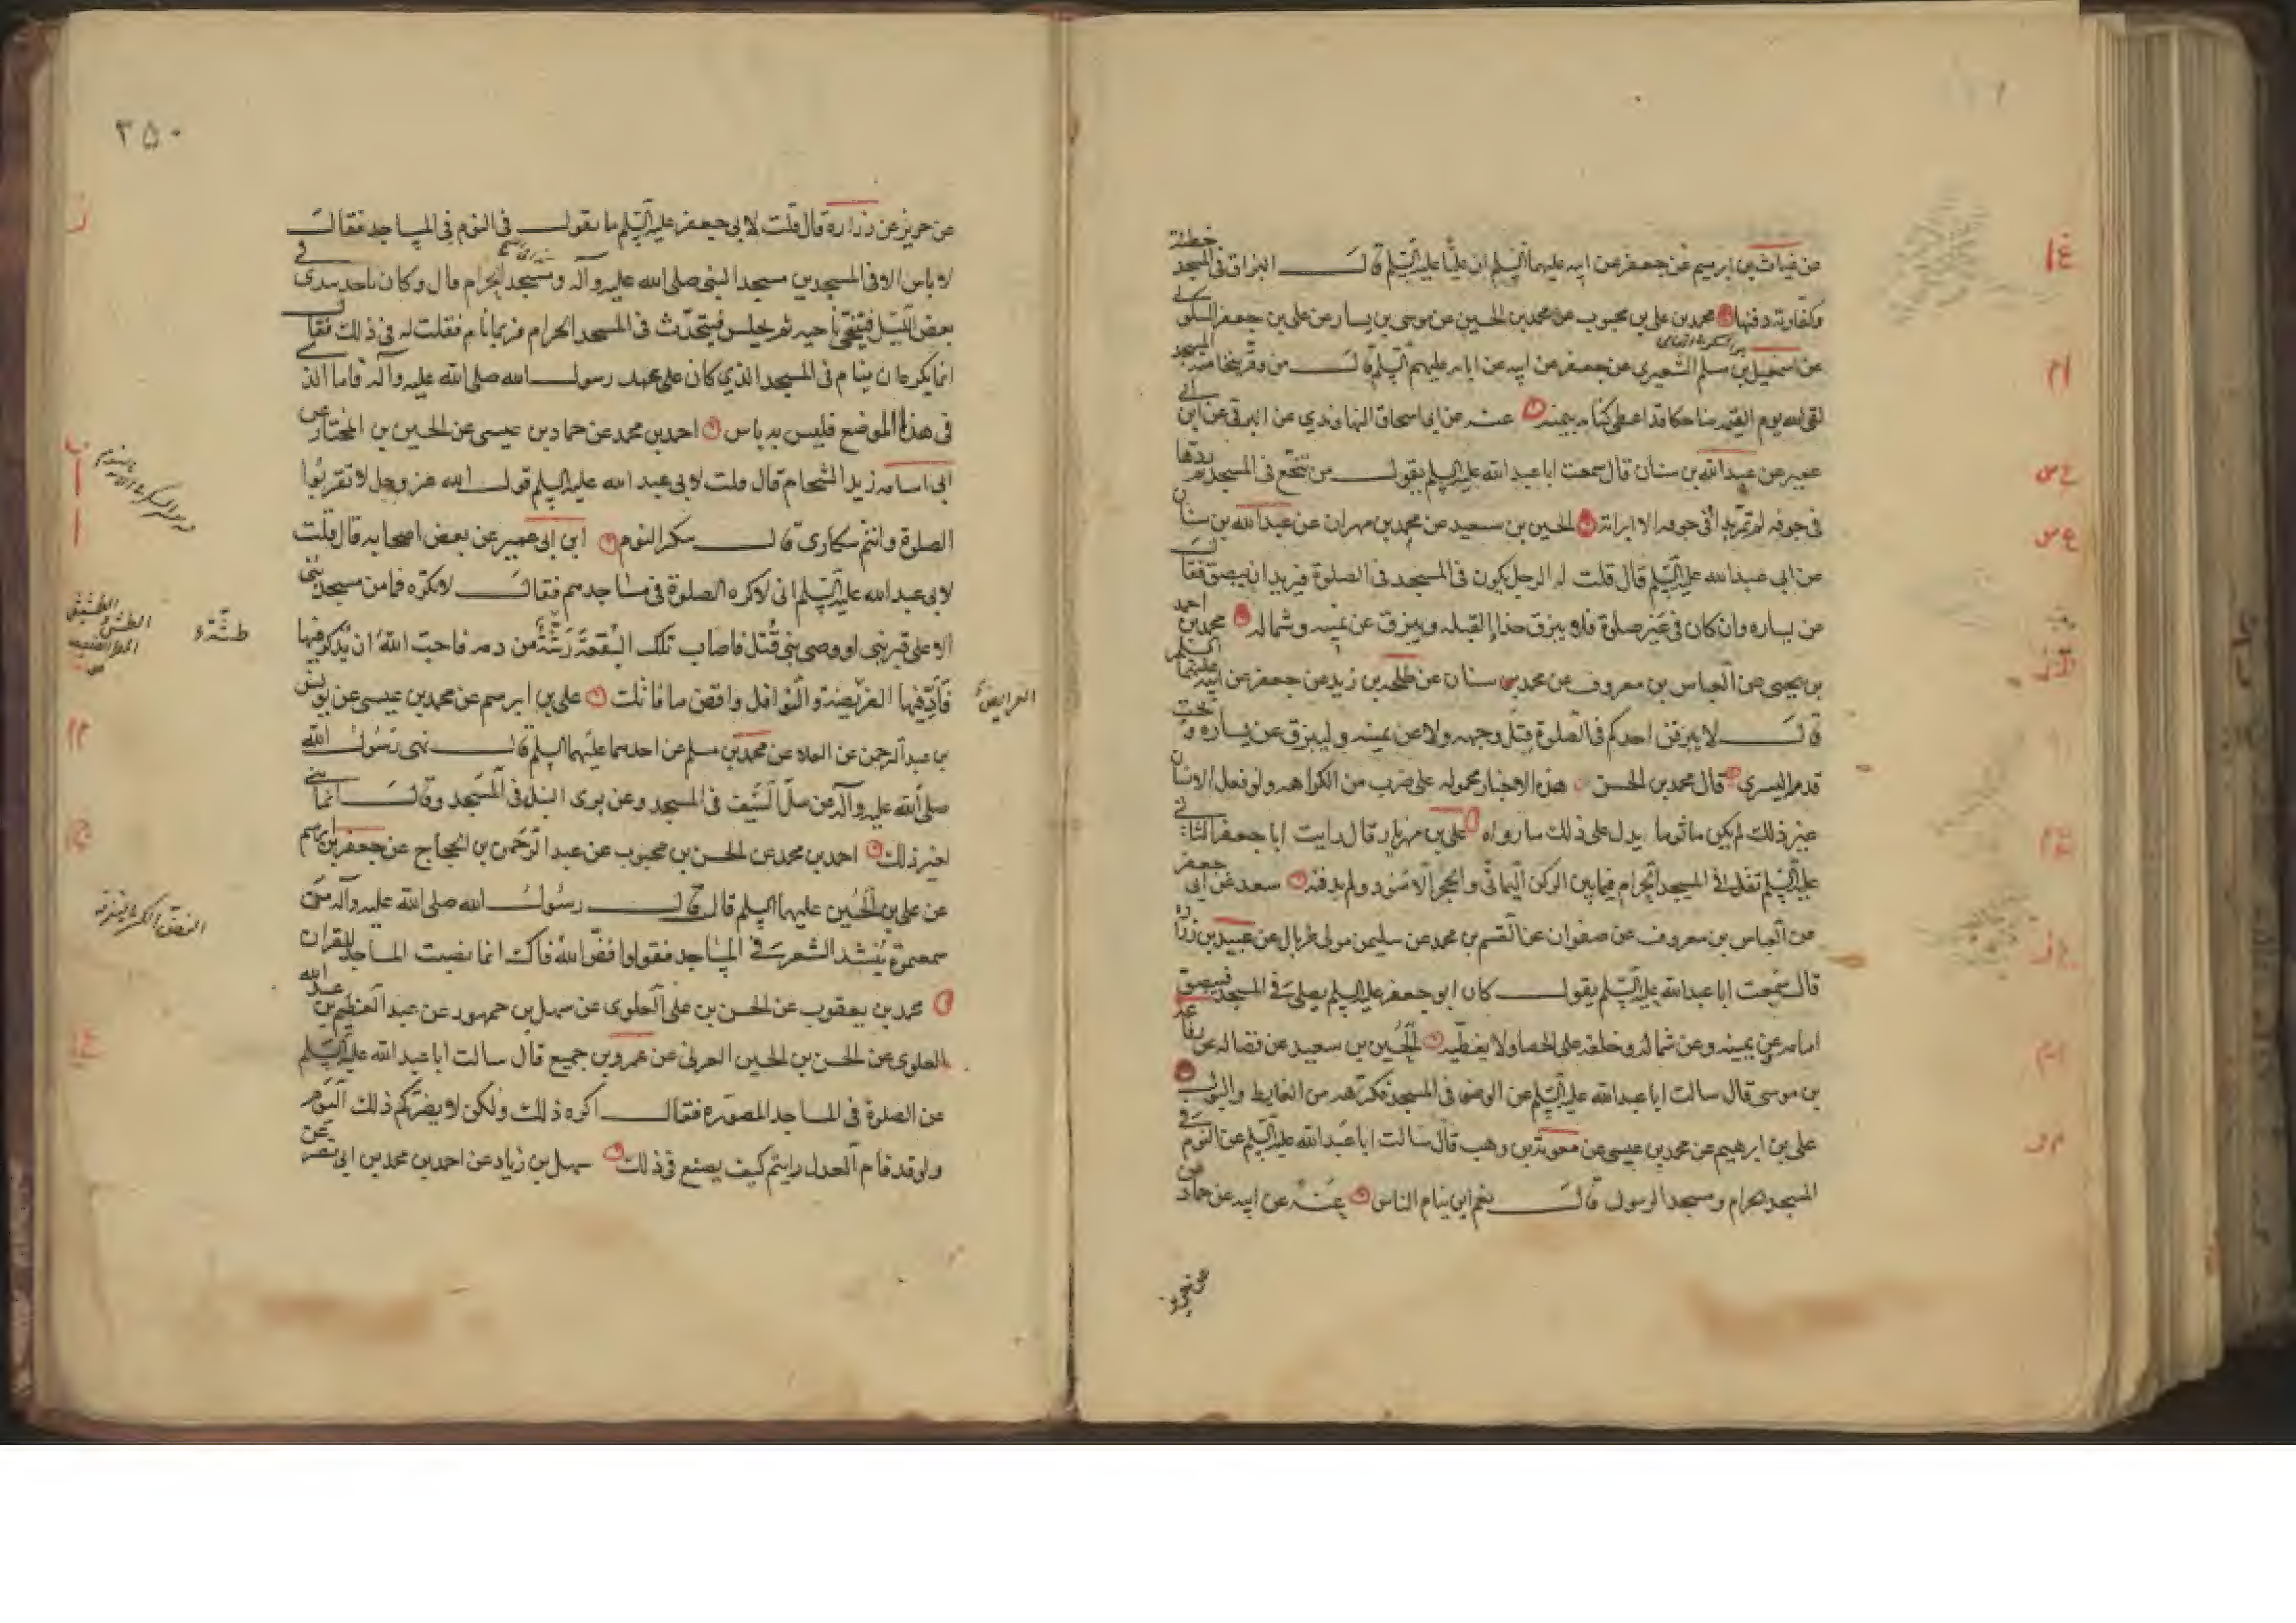 عن غياث بن ابرهيم عن جعفر عن ابيه عليهما السلم ان عليا عليه السلم قال البزاق في المسجد خطئة
وكفارته دفنها محمد بن علي بن محبوب عن محمد بن الحسين عن موسى بن يسار عن علي بن جعفر السكوني
عن اسمعيل بن مسلم الشعيري عن جعفر عن ابيه عن ابائه عليهم السلم قال من وقر بنخامته المسجد
لقى الله يوم القيمة ضاحكا قد اعطى كتابه بيمينه عنه عن ابي اسحاق النهاوندي عن البرقي عن ابن ابي
عمير عن عبد الله بن سنان قال سمعت ابا عبد الله عليه السلم يقول من تنخع في المسجد ثم ردها
في جوفه لم تمر بداء في جوفه الا ابراته الحسين بن سعيد عن محمد بن مهران عن عبد الله بن سنان
عن ابي عبد الله عليه السلم قال قلت له الرجل يكون في المسجد في الصلوة فيريد ان يبصق فقال
عن يساره وان كان في غير صلوة فلا يبزق حذاء القبله ويبزق عن يمينه وشماله محمد بن احمد
بن يحيى عن العباس بن معروف عن محمد بن سنان عن طلحه بن زيد عن جعفر عن ابيه عليهما السلم
قال لا يبزقن احدكم في الصلوة قبل وجهه ولا عن يمينه وليبزق عن يساره وتحت
قدمه اليسرى قال محمد بن الحسن هذه الاخبار محموله على ضرب من الكراهه ولو فعل الانسان
غير ذلك لم يكن ماثوما يدل على ذلك ما رواه علي بن مهزيار قال رايت ابا جعفر الثاني
عليه السلم تفل في المسجد الحرام فيما بين الركن اليماني والحجر الاسود ولم يدفنه سعد عن ابي جعفر
عن العباس بن معروف عن صفوان عن القسم بن محمد عن سليمن مولى طربال عن عبيد بن زراره
قال سمعت ابا عبد الله عليه السلم يقول كان ابو جعفر عليه السلم يصلي في المسجد فيبصق
امامه عن يمينه وعن شماله وخلفه على الحصا ولا يغطيه الحسين بن سعيد عن فضاله عن رفاعه
بن موسى قال سالت ابا عبد الله عليه السلم عن الوضوء في المسجد فكرهه من الغايط والبول
علي بن ابرهيم عن محمد بن عيسى عن معوية بن وهب قال سالت ابا عبد الله عليه السلم عن النوم في
المسجد الحرام ومسجد الرسول قال نعم اين ينام الناس عنه عن ابيه عن حماد عن
عن حريز
٣٥٠
عن حريز عن زراره قال قلت لابي جعفر عليه السلم ما تقول في النوم في المساجد فقال
لا باس الا في المسجدين مسجد النبي صلى الله عليه وآله ومسجد الحرام قال وكان ياخذ بيدي في
بعض الليل فيتنحى ناحيه ثم يجلس فيتحدث في المسجد الحرام فربما نام فقلت له في ذلك فقال
انما يكره ان ينام في المسجد الذي كان على عهد رسول الله صلى الله عليه وآله فاما الذي
في هذا الموضع فليس به باس احمد بن محمد عن حماد بن عيسى عن الحسين بن المختار عن
ابي اسامه زيد الشحام قال قلت لابي عبد الله عليه السلم قول الله عز وجل لا تقربوا
الصلوة وانتم سكارى قال سكر النوم ابن ابي عمير عن بعض اصحابه قال قلت
لابي عبد الله عليه السلم اني لاكره الصلوة في مساجدهم فقال لا تكره فما من مسجد بني
الا على قبر نبي او وصي نبي قتل فاصاب تلك البقعة رشة من دمه فاحب الله ان يذكر فيها
فادّ فيها الفريضة والنوافل واقض ما فاتك علي بن ابرهيم عن محمد بن عيسى عن يونس
بن عبد الرحمن عن العلاء عن محمد بن مسلم عن احدهما عليهما السلم قال نهى رسول الله
صلى الله عليه وآله عن سلّ السيف في المسجد وعن برى النبل في المسجد وقال انما بني
لغير ذلك احمد بن محمد عن الحسن بن محبوب عن عبد الرحمن بن الحجاج عن جعفر بن ابرهيم
عن علي بن الحسين عليهما السلم قال قال رسول الله صلى الله عليه وآله من
سمعتموه ينشد الشعر في المساجد فقولوا فض الله فاك انما نصبت المساجد للقران
محمد بن يعقوب عن الحسن بن علي العلوي عن سهل بن جمهور عن عبد العظيم بن عبد الله
العلوي عن الحسن بن الحسين العرني عن عمرو بن جميع قال سالت ابا عبد الله عليه السلم
عن الصلوة في المساجد المصوره فقال اكره ذلك ولكن لا يضركم ذلك اليوم
ولو قد قام العدل رايتم كيف يصنع في ذلك سهل بن زياد عن احمد بن محمد بن ابي نصر عن